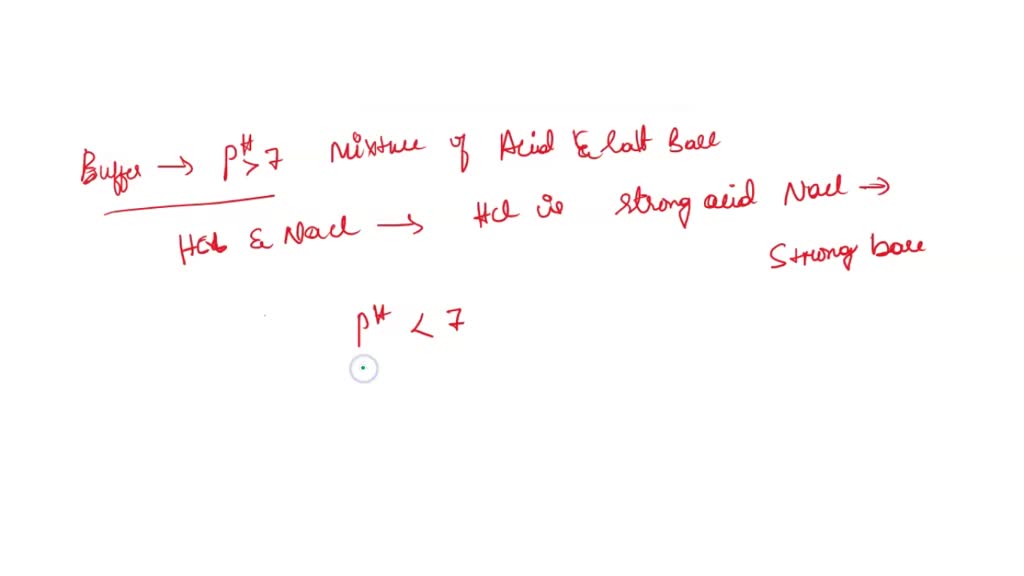 Buffer → pH > 7 Mixture of Acid & Salt Base
HCl & NaCl → HCl is strong acid NaCl →
Strong base
pH < 7